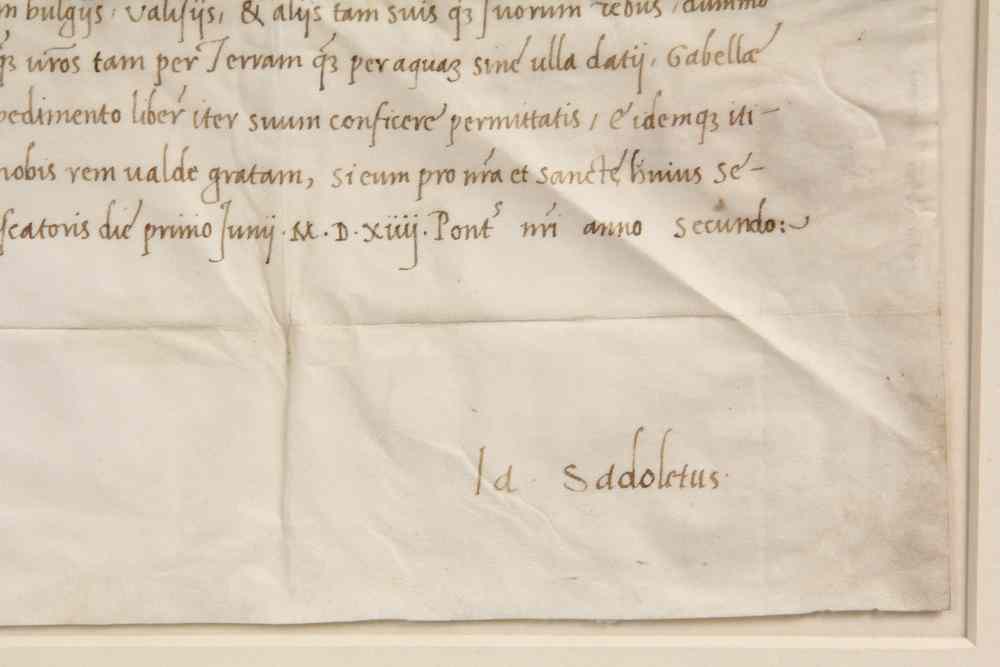 bulgijs, valisijs, & alijs tam suis qз suorum rebus, dummo
qз vr̃os tam per Terram qз́ per aquaз sine ulla datij, Gabellæ
pedimento liber iter suum conficere permittatis, eidemqз iti-
nobis rem valde gratam, sicum pro nr̃a et sanctę huius Se-
scatoris die primo Junij .M.D.Xiiij. Pont^s nr̃i anno secundo:
Ia. Sadoletus.